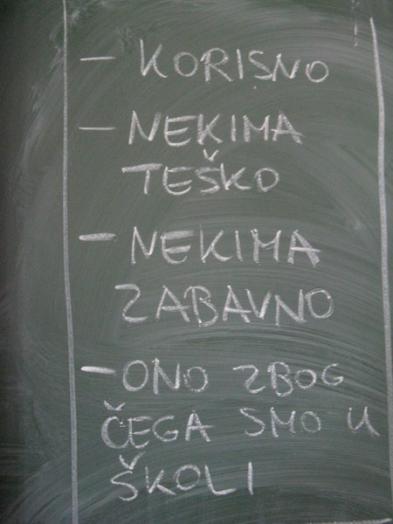 – KORISNO
– NEKIMA
TEŠKO
– NEKIMA
ZABAVNO
– ONO ZBOG
ČEGA SMO U
ŠKOLI